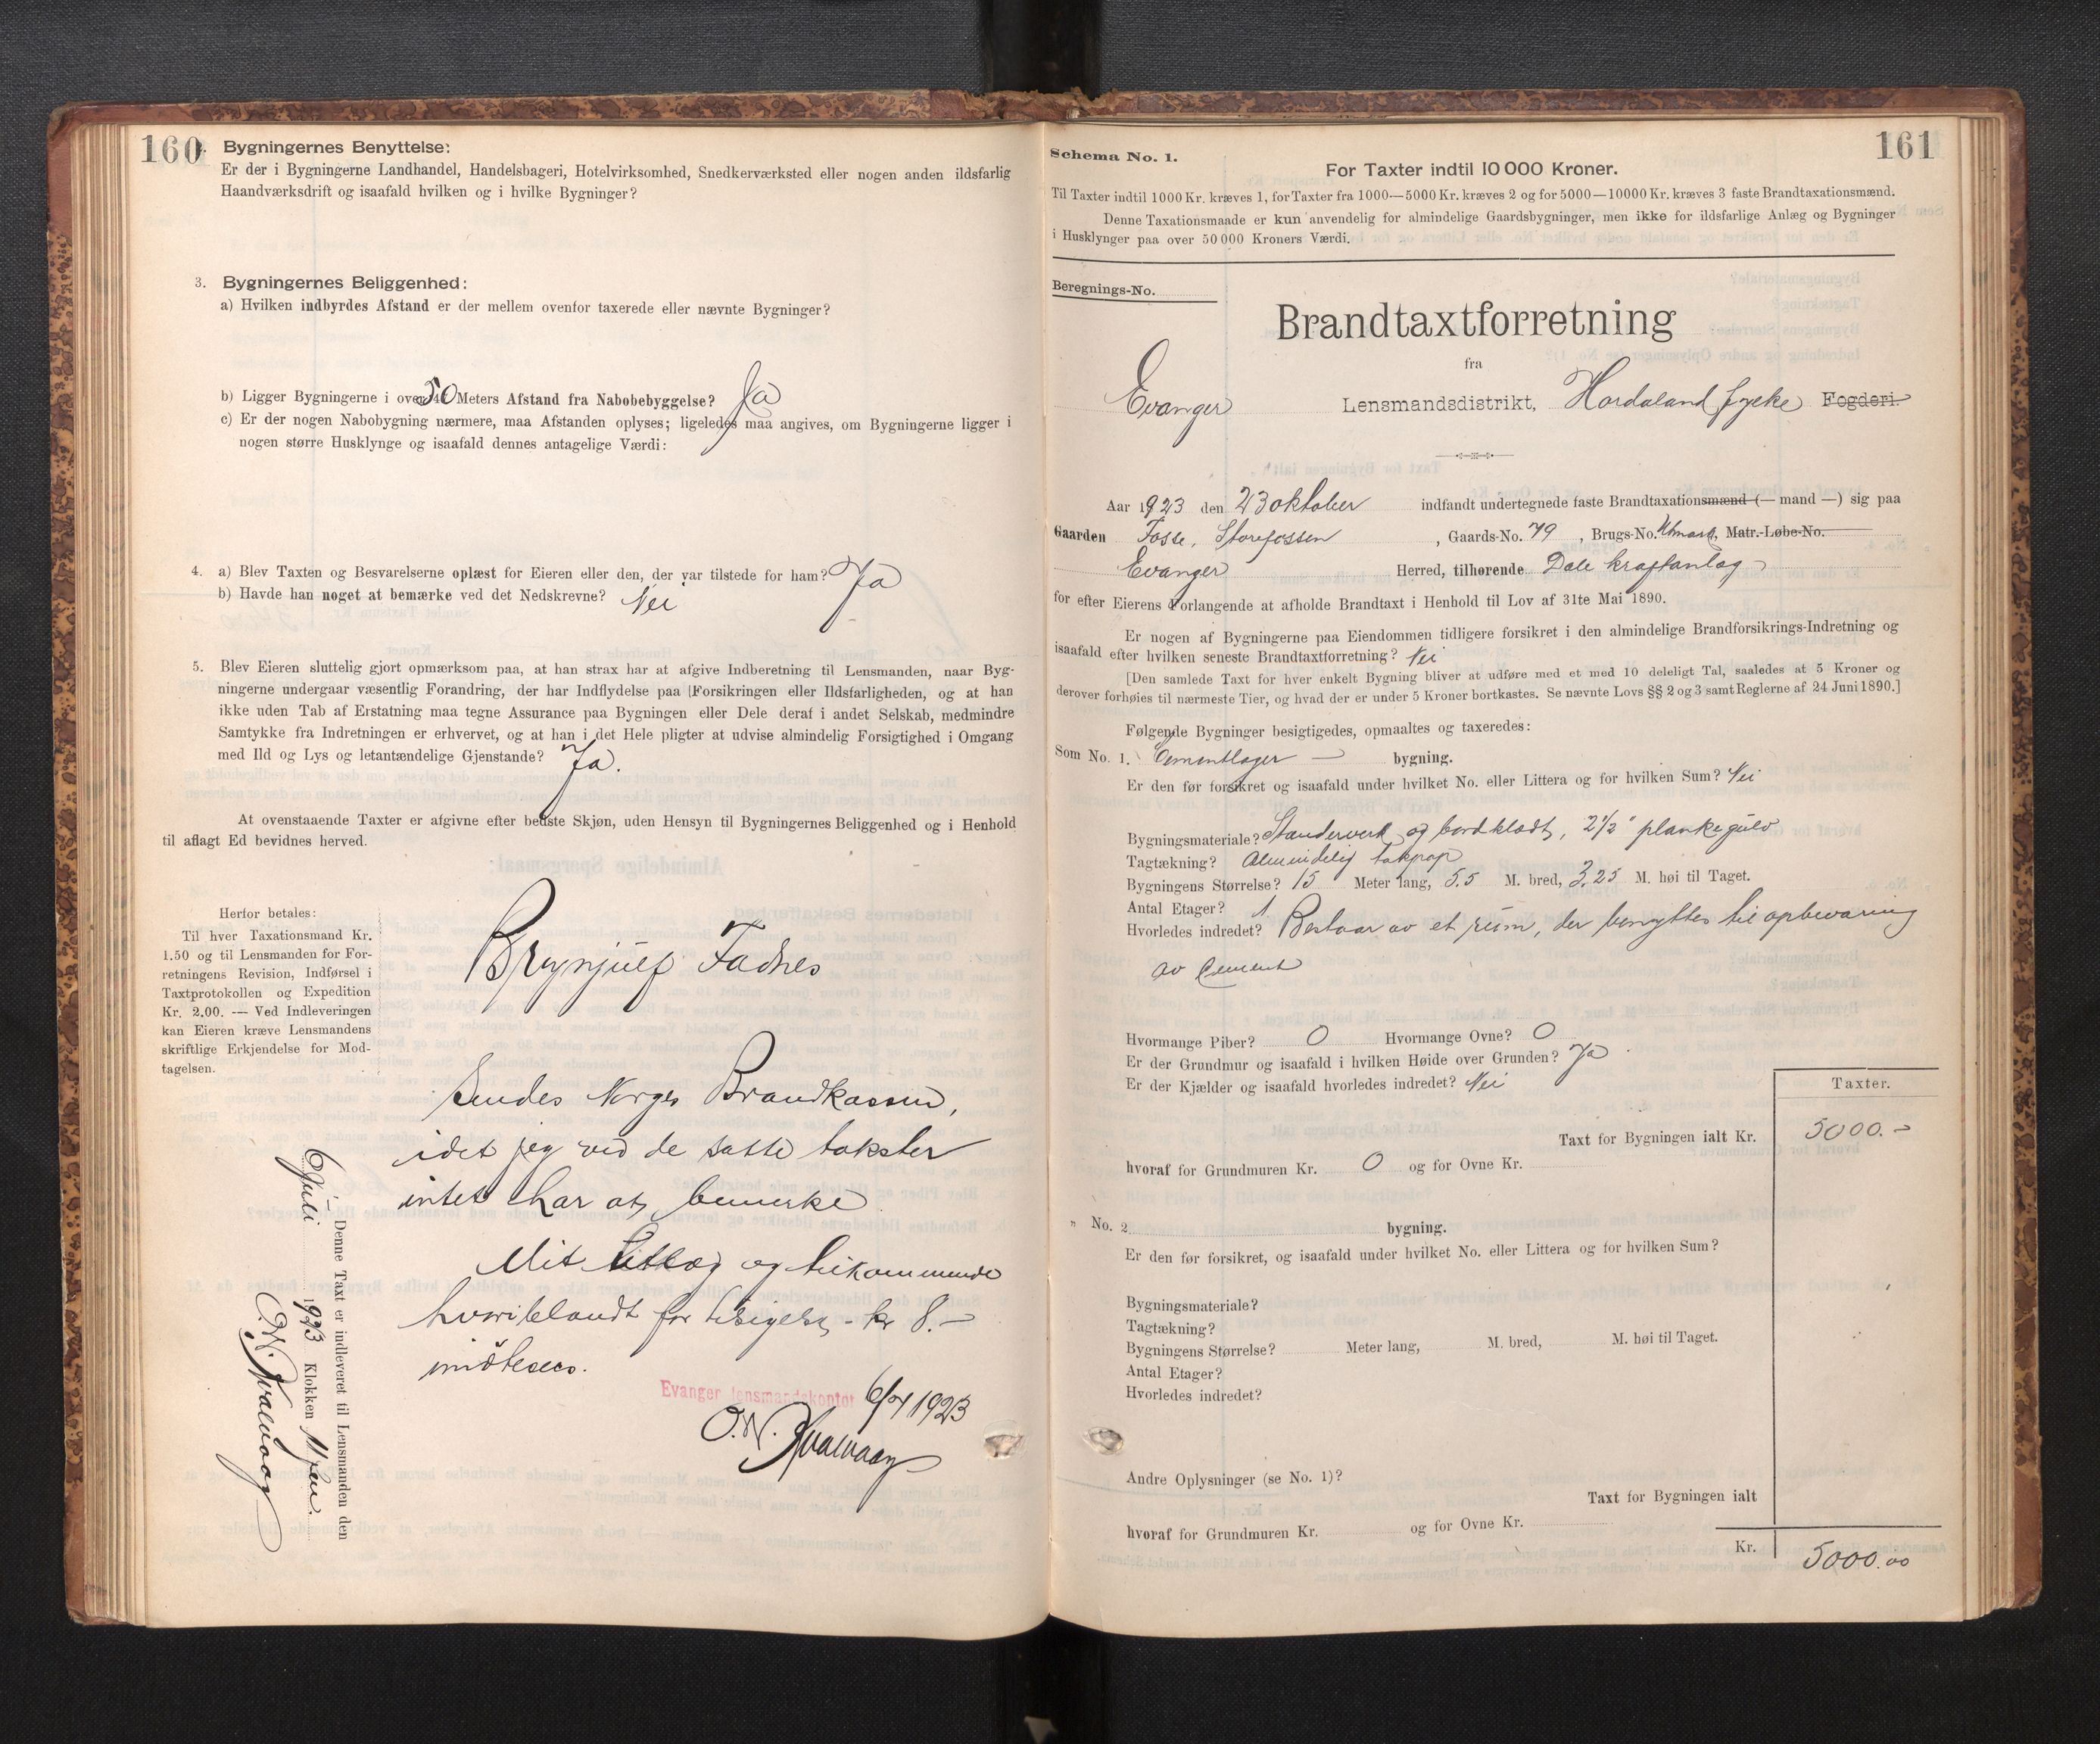 160
Bygningernes Benyttelse:
Er der i Bygningerne Landhandel, Handelsbageri, Hotelvirksomhed, Snedkerværksted eller nogen anden ildsfarlig
Haandværksdrift og isaafald hvilken og i hvilke Bygninger?
3. Bygningernes Beliggenhed:
a) Hvilken indbyrdes Afstand er der mellem ovenfor taxerede eller nævnte Bygninger?
b) Ligger Bygningerne i over 50 Meters Afstand fra Nabobebyggelse? Ja
c) Er der nogen Nabobygning nærmere, maa Afstanden oplyses; ligeledes maa angives, om Bygningerne ligger i
nogen større Husklynge og isaafald dennes antagelige Værdi:
4. a) Blev Taxten og Besvarelserne oplæst for Eieren eller den, der var tilstede for ham? Ja
b) Havde han noget at bemærke ved det Nedskrevne? Nei
5. Blev Eieren sluttelig gjort opmærksom paa, at han strax har at afgive Indberetning til Lensmanden, naar Byg-
ningerne undergaar væsentlig Forandring, der har Indflydelse paa Forsikringen eller Ildsfarligheden, og at han
ikke uden Tab af Erstatning maa tegne Assurance paa Bygningen eller Dele deraf i andet Selskab, medmindre
Samtykke fra Indretningen er erhvervet, og at han i det Hele pligter at udvise almindelig Forsigtighed i Omgang
med Ild og Lys og letantændelige Gjenstande? Ja.
At ovenstaaende Taxter er afgivne efter bedste Skjøn, uden Hensyn til Bygningernes Beliggenhed og i Henhold
til aflagt Ed bevidnes herved.
Herfor betales:
Til hver Taxationsmand Kr.
1.50 og til Lensmanden for For-
retningens Revision, Indførsel i
Taxtprotokollen og Expedition
Kr. 2.00. — Ved Indleveringen
kan Eieren kræve Lensmandens
skriftlige Erkjendelse for Mod-
tagelsen.
Brynjulf Fadnes
Sendes Norges Brandkasse,
idet jeg ved de satte takster
intet har at bemerke
Mit utlæg og tilkommende
hvoriblandt for tilsigelse - kr 8.-
imøtesees.
Evanger lensmandskontor 6/7 1923
O.W. Kvalvaag
Denne Taxt er indleveret til Lensmanden den
6 Juli 1923 Klokken 11 fm.
O.W. Kvalvaag
161
Schema No. 1.
For Taxter indtil 10 000 Kroner.
Til Taxter indtil 1000 Kr. kræves 1, for Taxter fra 1000—5000 Kr. kræves 2 og for 5000—10000 Kr. kræves 3 faste Brandtaxationsmænd.
Denne Taxationsmaade er kun anvendelig for almindelige Gaardsbygninger, men ikke for ildsfarlige Anlæg og Bygninger
i Husklynger paa over 50 000 Kroners Værdi.
Beregnings-No.
Brandtaxtforretning
fra
Evanger Lensmandsdistrikt, Hordaland fylke Fogderi.
Aar 1923 den 23 oktober indfandt undertegnede faste Brandtaxationsmænd (— mand —) sig paa
Gaarden Fosse, Storefossen, Gaards-No. 79, Brugs-No. Utmark, Matr.-Løbe-No.
Evanger Herred, tilhørende Dale kraftanlæg
for efter Eierens Forlangende at afholde Brandtaxt i Henhold til Lov af 31te Mai 1890.
Er nogen af Bygningerne paa Eiendommen tidligere forsikret i den almindelige Brandforsikrings-Indretning og
isaafald efter hvilken seneste Brandtaxtforretning? Nei
[Den samlede Taxt for hver enkelt Bygning bliver at udføre med et med 10 deleligt Tal, saaledes at 5 Kroner og
derover forhøies til nærmeste Tier, og hvad der er under 5 Kroner bortkastes. Se nævnte Lovs §§ 2 og 3 samt Reglerne af 24 Juni 1890.]
Følgende Bygninger besigtigedes, opmaaltes og taxeredes:
Som No. 1. Cementlager — bygning.
Er den før forsikret og isaafald under hvilket No. eller Littera og for hvilken Sum? Nei
Bygningsmateriale? Standerverk og bordklædt, 2 1/2" plankegulv
Tagtækning? Almindelig takpap
Bygningens Størrelse? 15 Meter lang, 5.5 M. bred, 3.25 M. høi til Taget.
Antal Etager? 1.
Hvorledes indredet? Bestaar av et rum, der benyttes til opbevaring
av cement
Hvormange Piber? 0 Hvormange Ovne? 0
Er der Grundmur og isaafald i hvilken Høide over Grunden? Ja
Er der Kjælder og isaafald hvorledes indredet? Nei
Taxter.
Taxt for Bygningen ialt Kr. 5000.-
hvoraf for Grundmuren Kr. 0 og for Ovne Kr.
" No. 2 bygning.
Er den før forsikret, og isaafald under hvilket No. eller Littera og for hvilken Sum?
Bygningsmateriale?
Tagtækning?
Bygningens Størrelse? Meter lang, M. bred, M. høi til Taget.
Antal Etager?
Hvorledes indredet?
Andre Oplysninger (se No. 1)?
Taxt for Bygningen ialt
hvoraf for Grundmuren Kr. og for Ovne Kr.
Kr. 5000.00